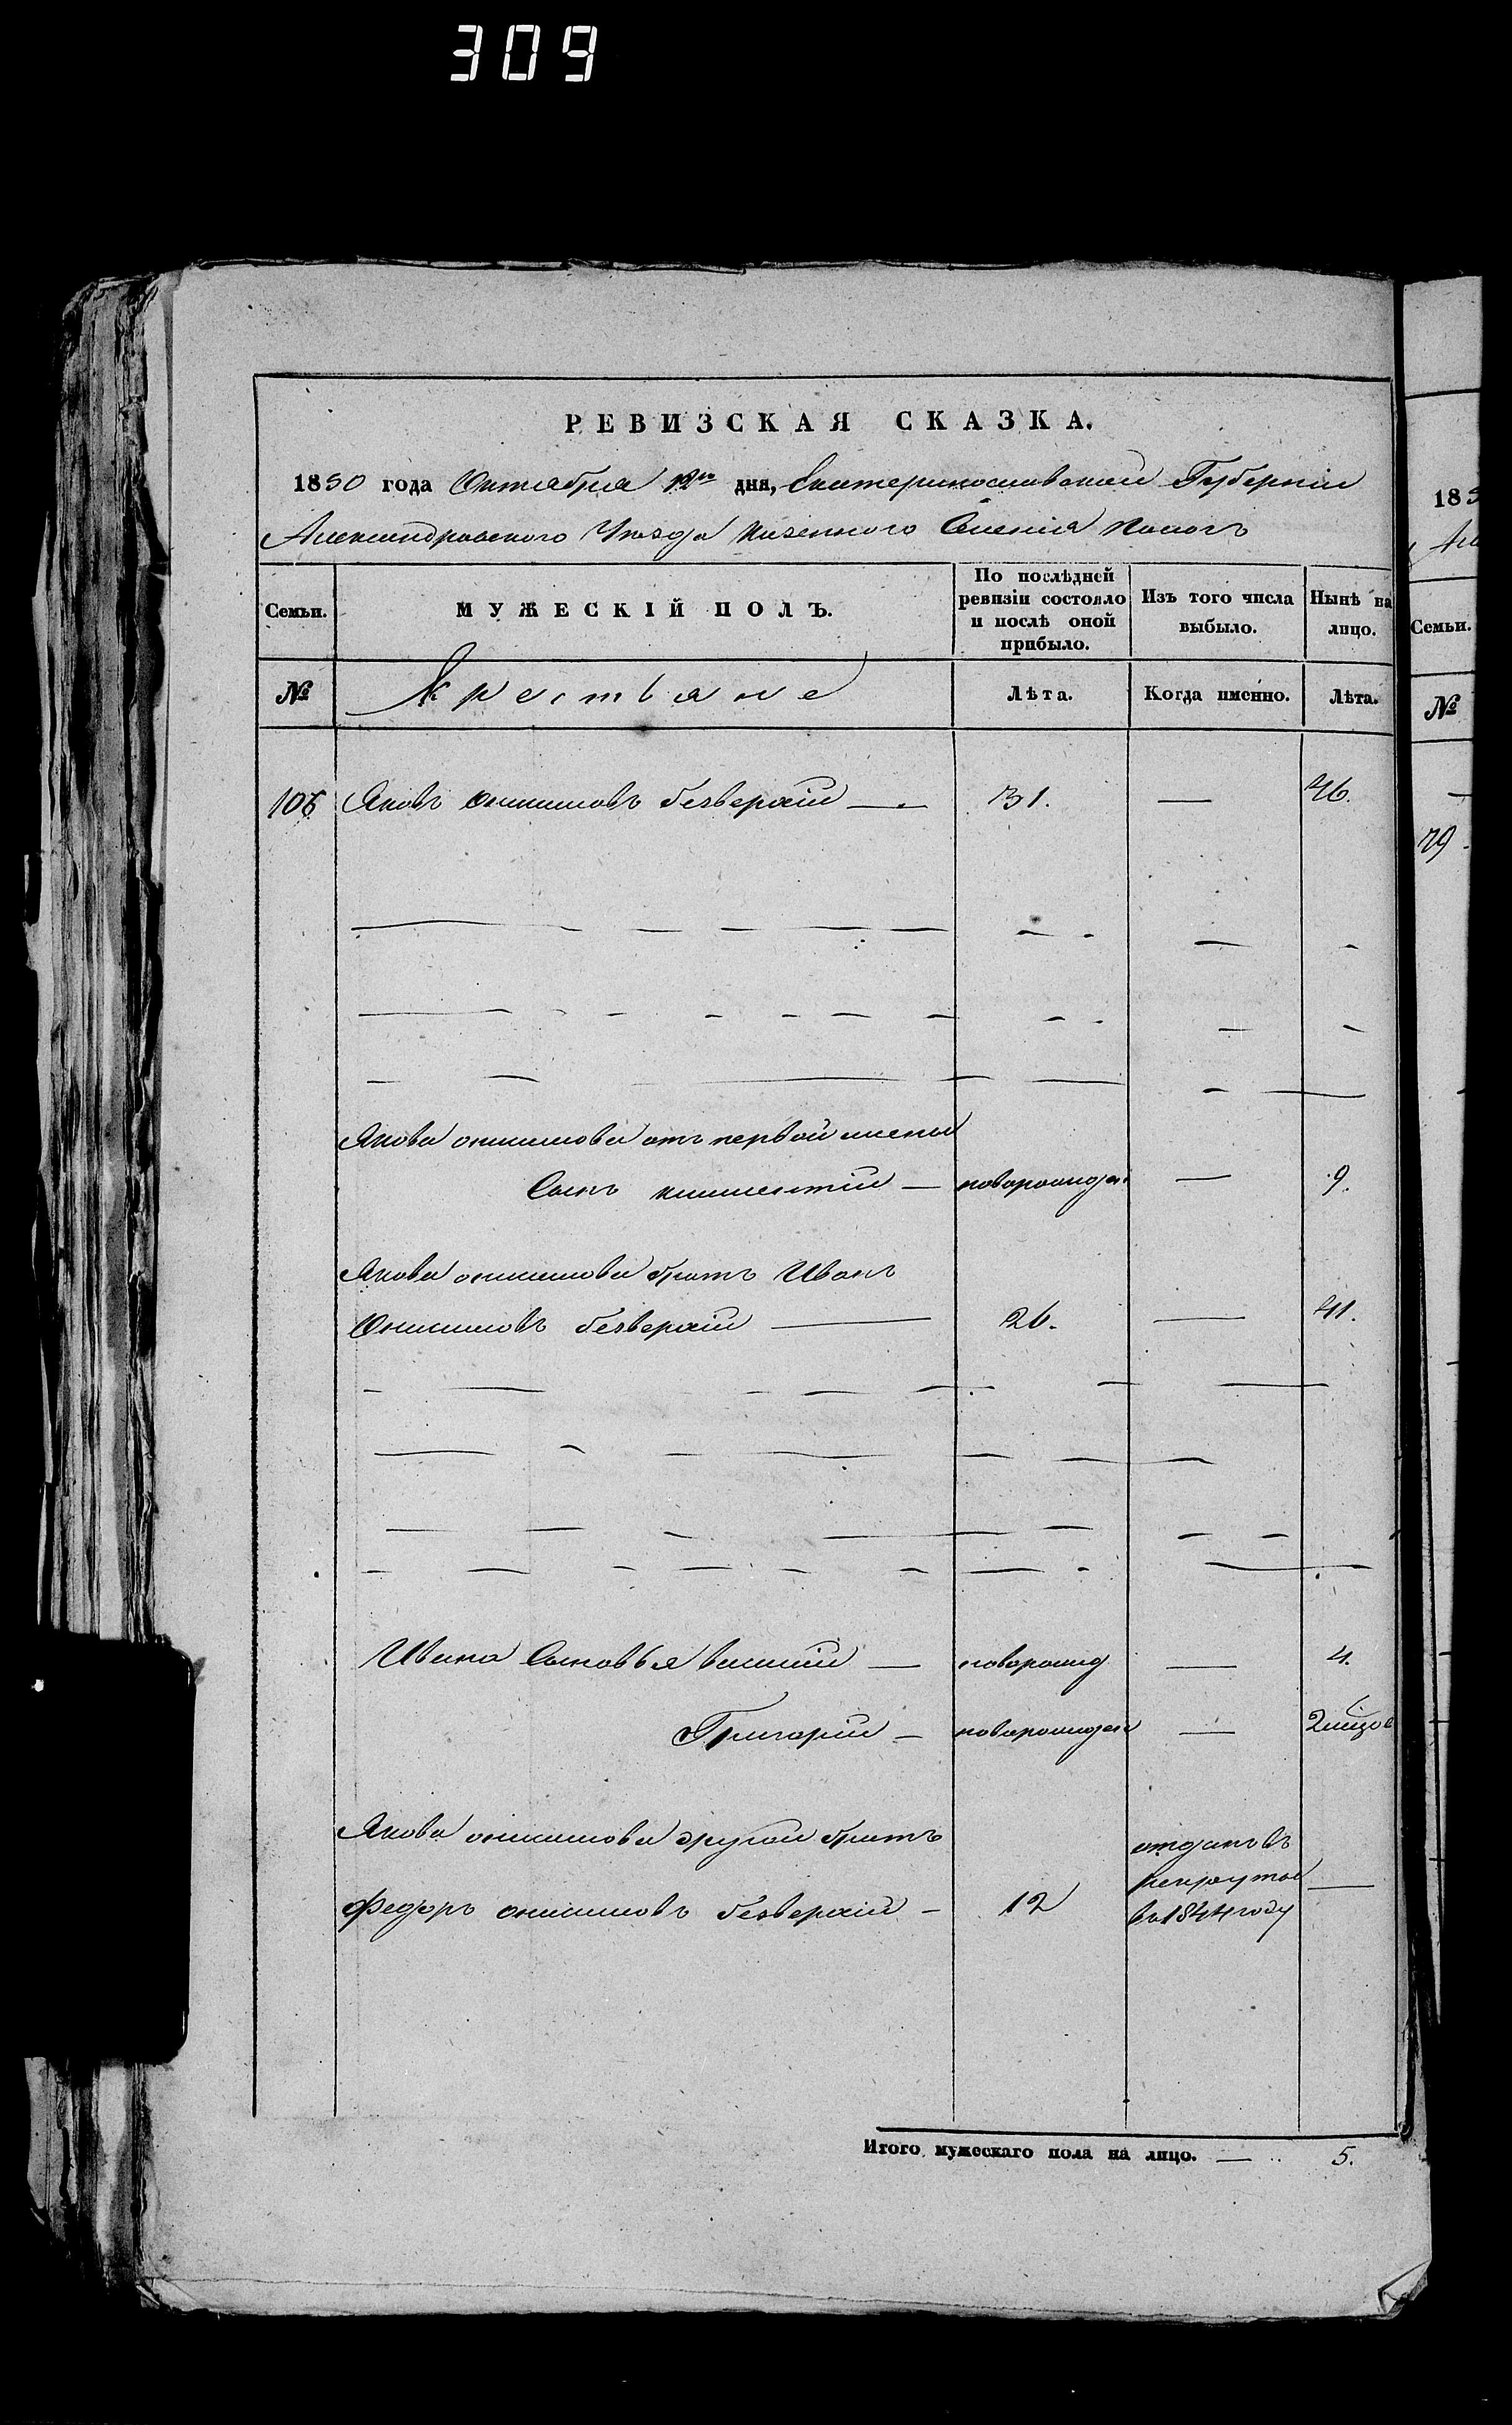 309
РЕВИЗСКАЯ СКАЗКА.
1850 года Октября 12го дня, Екатеринославской Губерніи
Александровского Уѣзда казенного Селенія Пологъ
Семьи.
МУЖЕСКІЙ ПОЛЪ.
По послѣдней ревизіи состояло и послѣ оной прибыло.
Изъ того числа выбыло.
Нынѣ на лицо.
№
Крестьяне
Лѣта.
Когда именно.
Лѣта.
106 Яковъ Онисимовъ безверхій — 31. — 46.
Якова онисимова отъ первой жены
Сынъ климентій — новорожден — 9.
Якова онисимова братъ Иванъ
Онисимовъ безверхій — 26. — 41.
Ивана Сыновья — новорожд — 4.
Григорій — новорожден — 2
Якова онисимова другой братъ
отданъ въ
рекруты —
Федоръ онисимовъ безверхій — 12
въ 1844 году
Итого мужескаго пола на лицо. — 5.
185
Семьи.
№
79